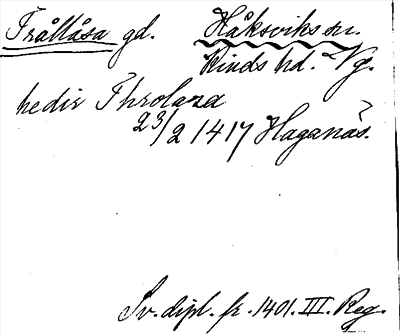 Trållåsa gd. Håksviks sn.
Kinds hd. Vg.
hedir Throlaza
23/2 1417 Haganäs.
Sv. dipl. fr. 1401. III. Reg.